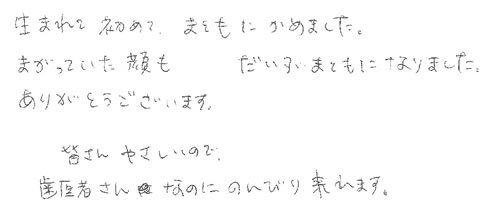 生まれて初めて、まともにかめました。
まがっていた顔も だいぶまともになりました。
ありがとうございます。
皆さんやさしいので、
歯医者さんなのにのんびり来れます。